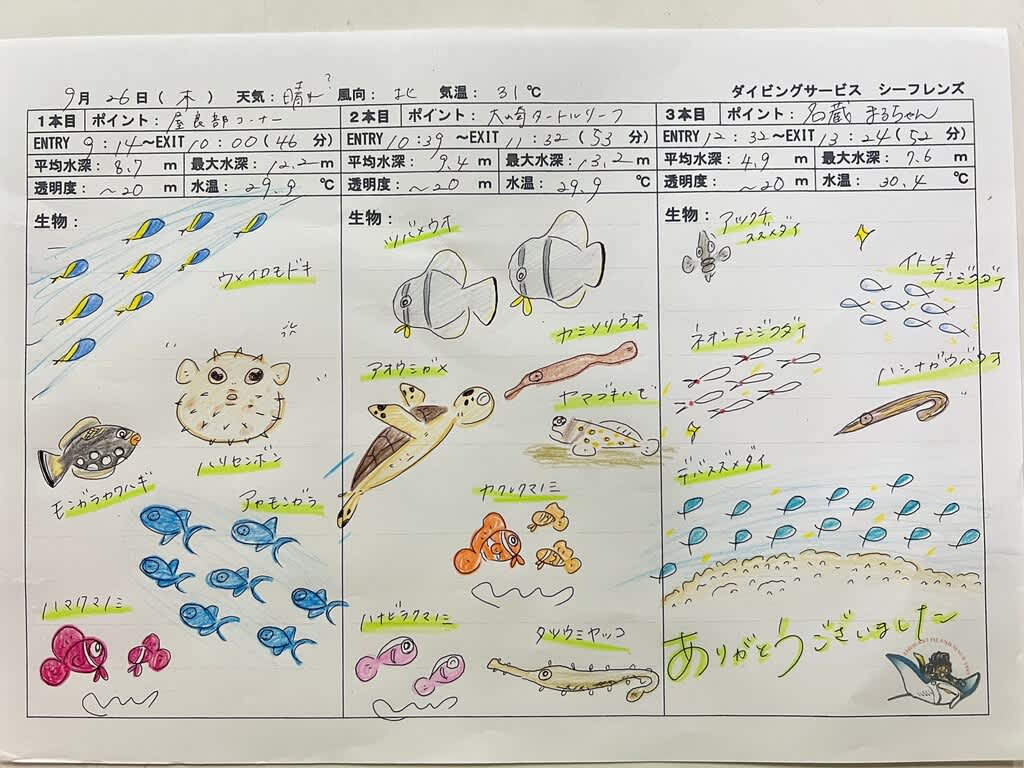 9月 26日(木) 天気:晴れ? 風向:北 気温:31℃ ダイビングサービス シーフレンズ
1本目 ポイント:屋良部コーナー
ENTRY 9:14~EXIT 10:00(46 分)
平均水深:8.7 m 最大水深:12.2 m
透明度:~20 m 水温:29.9 ℃
生物:
ウメイロモドキ
ハリセンボン
モンガラカワハギ
アカモンガラ
ハマクマノミ
2本目 ポイント:大崎タートルリーフ
ENTRY 10:39 ~EXIT 11:32(53 分)
平均水深:9.4 m 最大水深:13.2 m
透明度:~20 m 水温:29.9 ℃
生物:
ツバメウオ
カミソリウオ
アオウミガメ
ヤマブキハゼ
カクレクマノミ
ハナビラクマノミ
タツウミヤッコ
3本目 ポイント:名蔵 まるちゃん
ENTRY 12:32~EXIT 13:24(52 分)
平均水深:4.9 m 最大水深:7.6 m
透明度:~20 m 水温:30.4 ℃
生物:
アツクチ
スズメダイ
イトヒキ
テンジクダイ
ネオンテンジクダイ
ハシナガウバウオ
デバスズメダイ
ありがとうございました